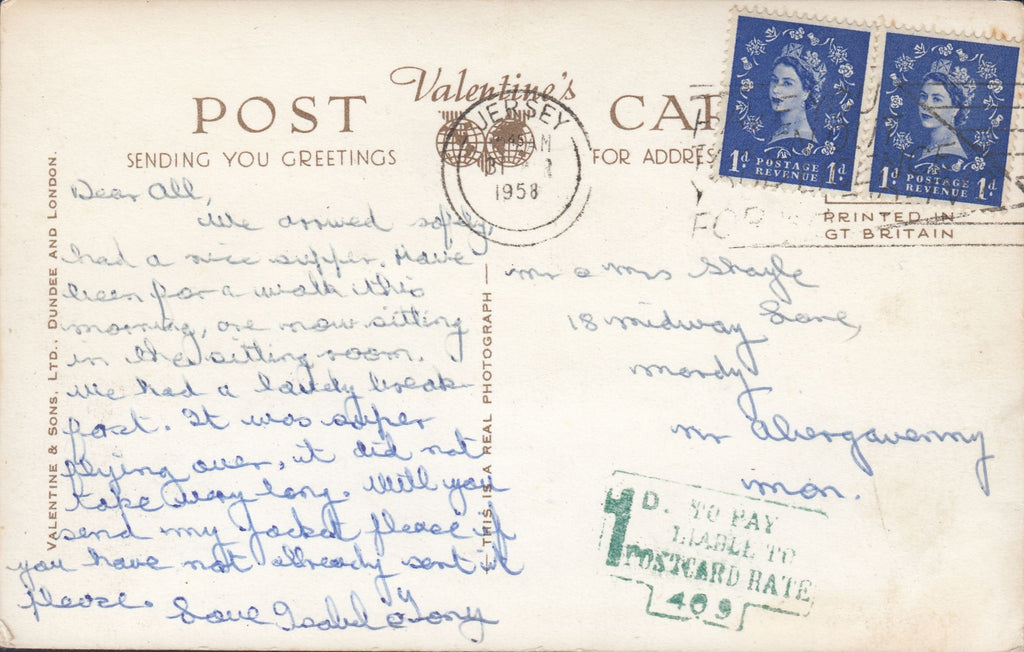 Valentine's
POST CA
SENDING YOU GREETINGS
FOR ADDRES
JERSEY
AM
1958
1d POSTAGE REVENUE 1d
1d POSTAGE REVENUE 1d
PRINTED IN
GT BRITAIN
VALENTINE & SONS, LTD., DUNDEE AND LONDON.
THIS IS A REAL PHOTOGRAPH
Dear All,
We arrived safely,
had a nice supper. Have
been for a walk this
morning, are now sitting
in the sitting room.
We had a break
fast. It was super
flying over, it did not
take very long. Will you
send my jacket please if
you have not already sent it
please.
Love Isabel & Tony
Mr & Mrs
18 Midway Lane,
Mardy
Nr Abergavenny
Mon.
1D. TO PAY
LIABLE TO
POSTCARD RATE
409